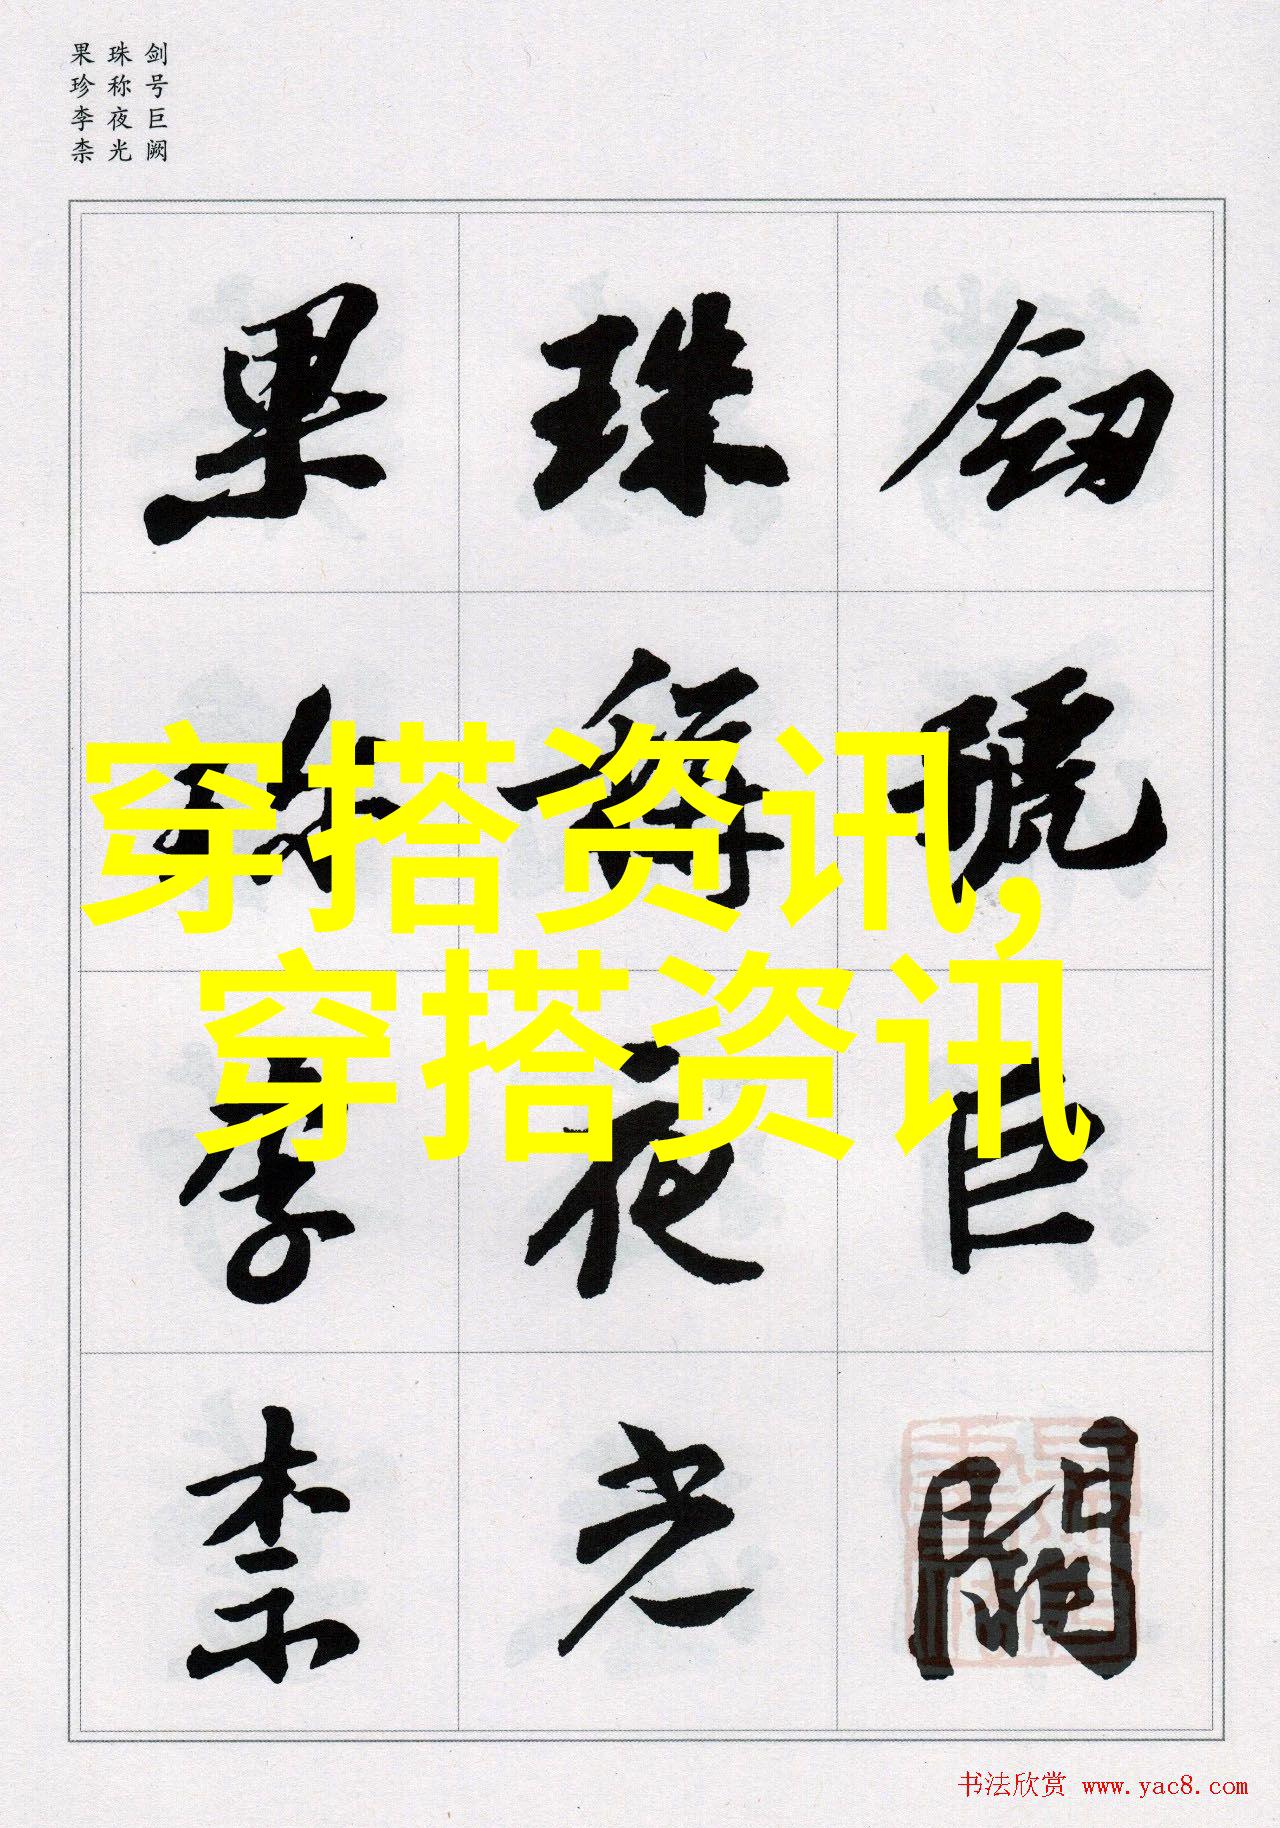 剑号巨阙
珠称夜光
果珍李柰
劒號巨闕
珠稱夜光
果珍李柰
穿搭资讯,
穿搭资讯
书法欣赏 www.yac8.com